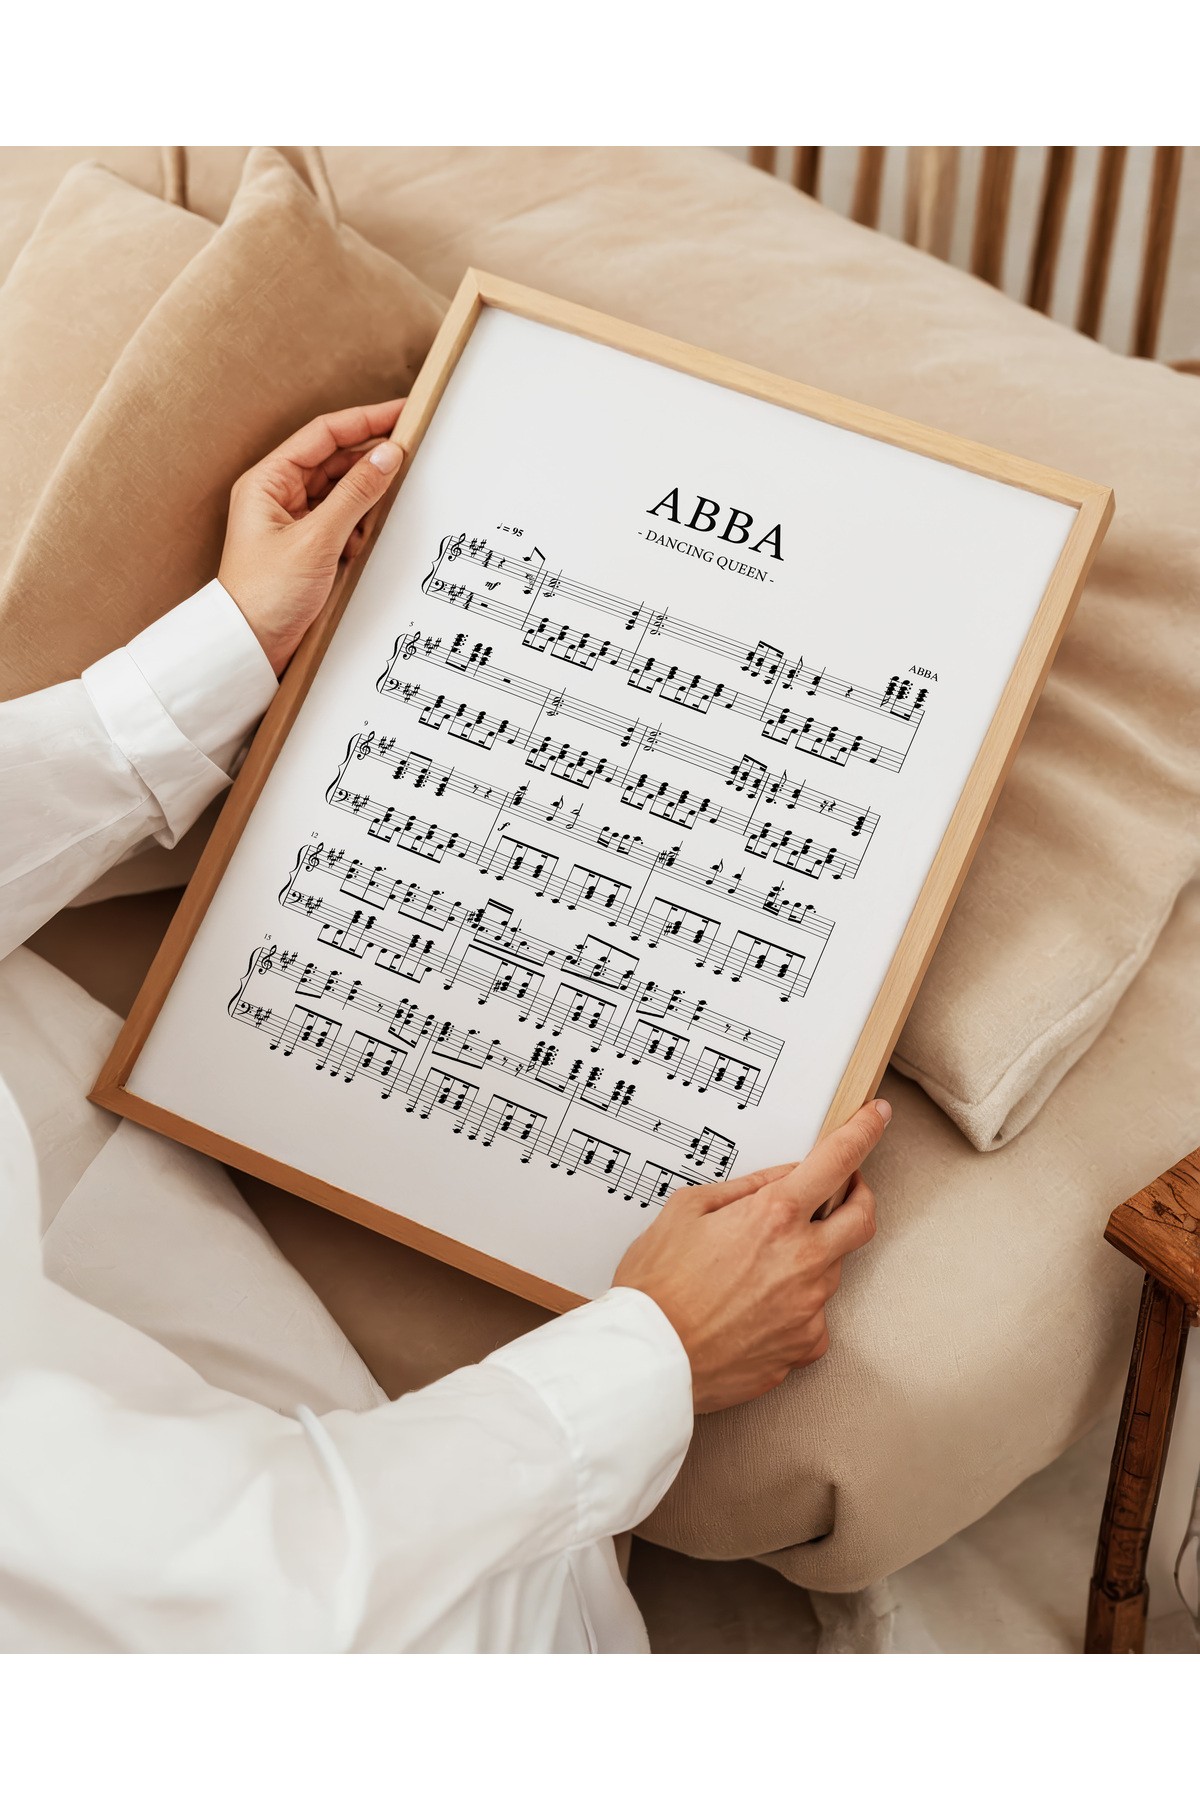 ABBA
- DANCING QUEEN -
♩= 95
ABBA
mf
5
9
f
12
15